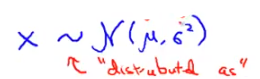 x ~ N(μ, σ²)
"distributed as"